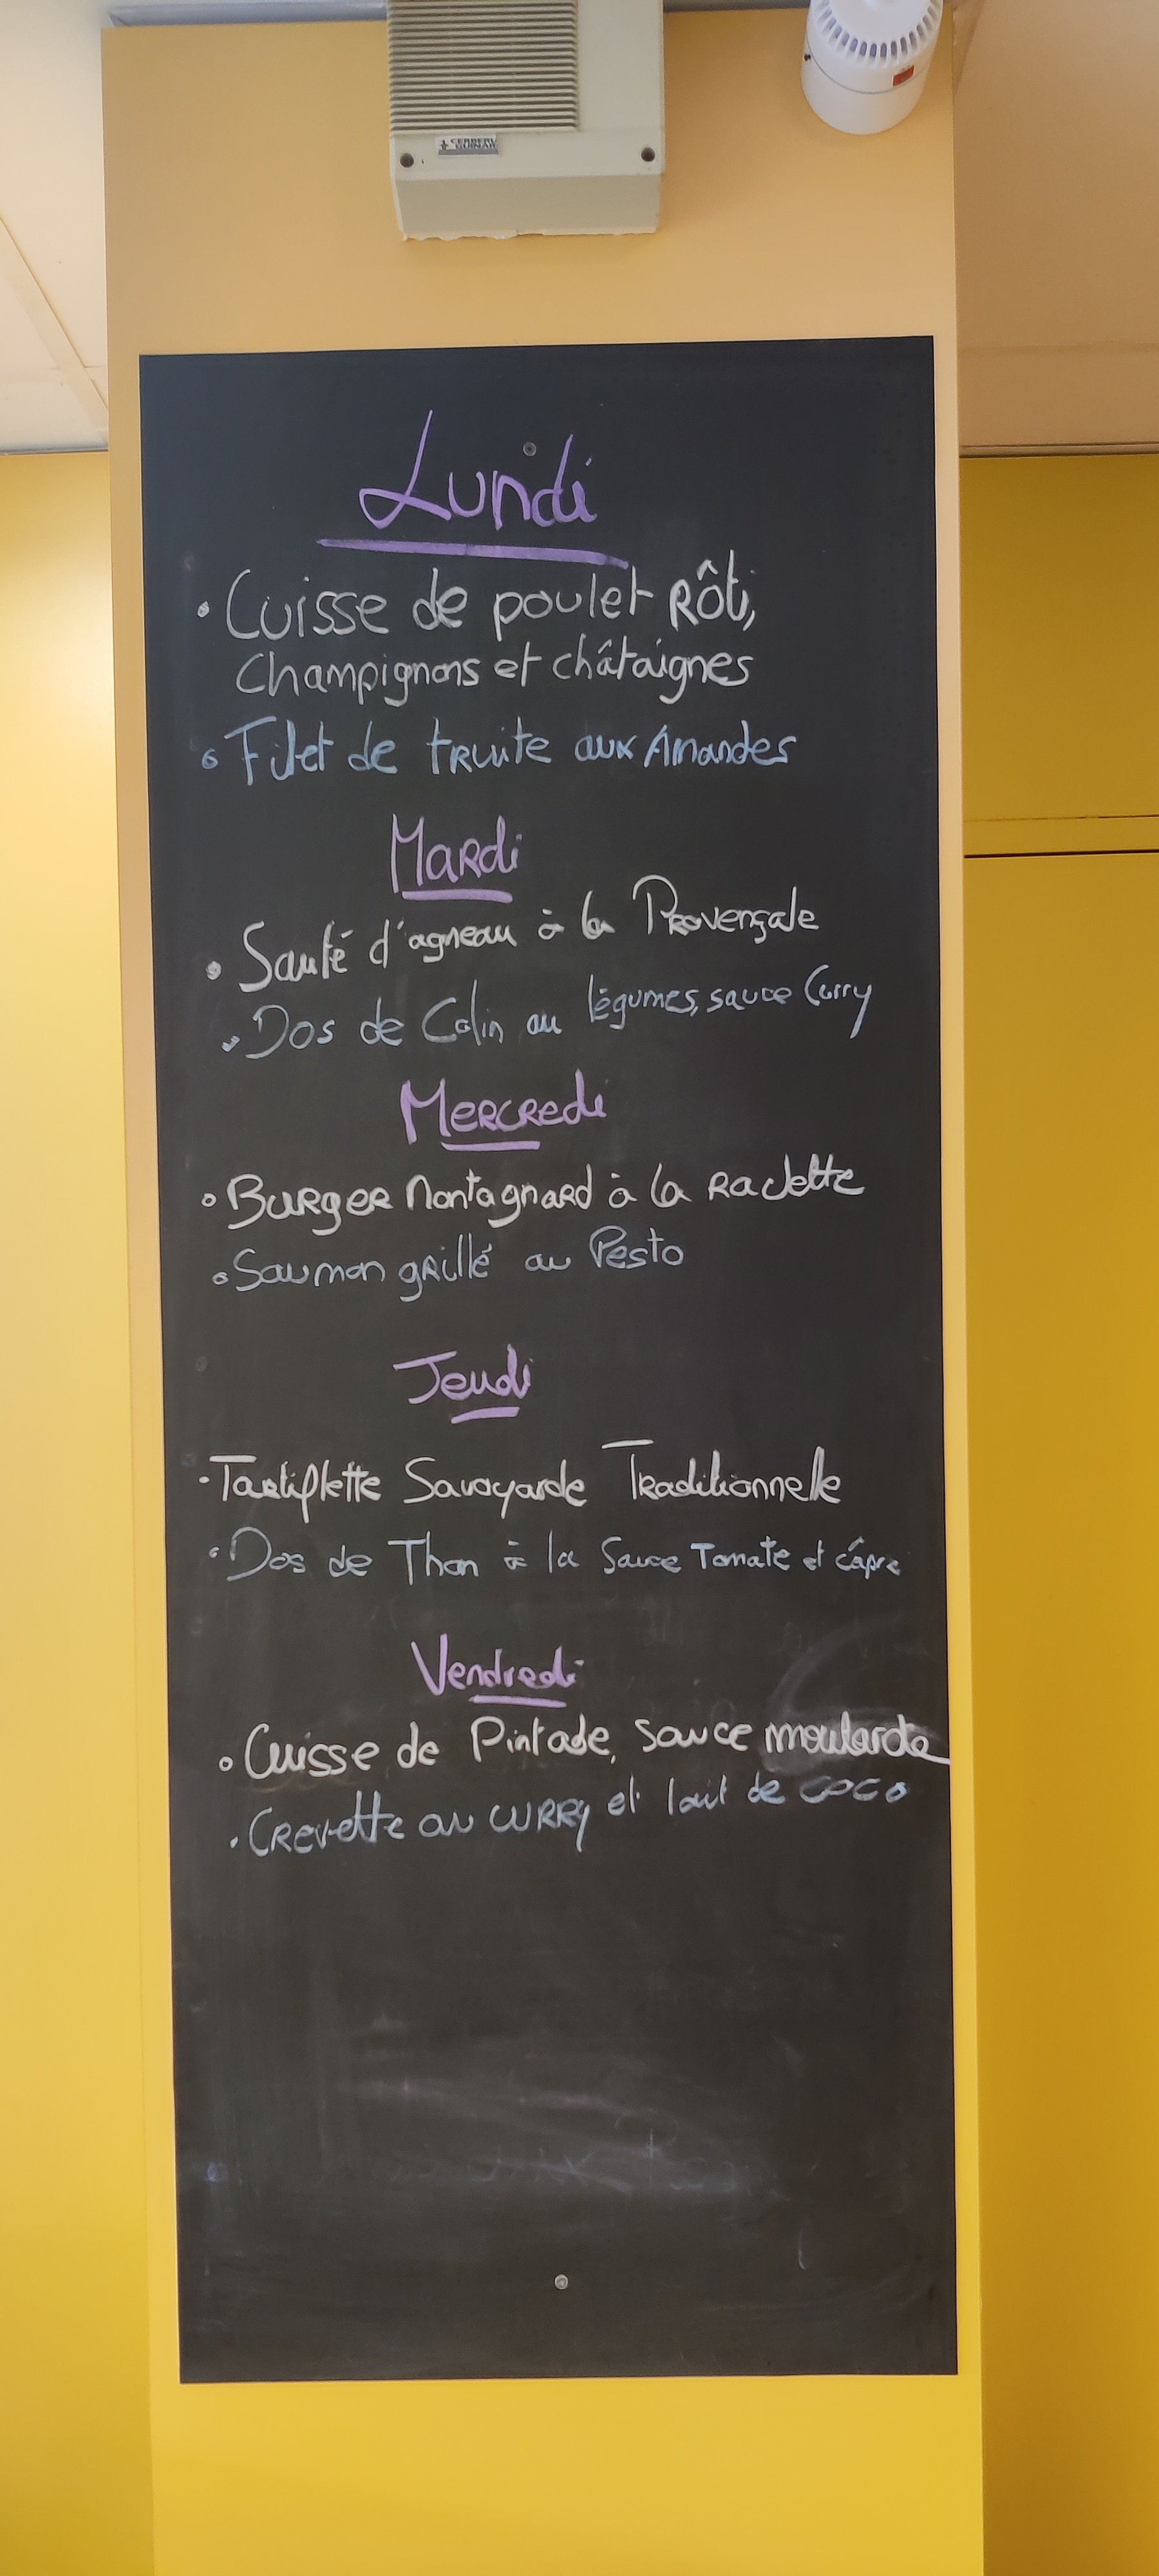 CERBERUS
GUINARD
Lundi
• Cuisse de poulet Rôti,
Champignons et châtaignes
• Filet de truite aux Amandes
Mardi
• Sauté d'agneau à la Provençale
• Dos de Colin au légumes, sauce Curry
Mercredi
• Burger Montagnard à la Raclette
• Saumon grillé au Pesto
Jeudi
• Tartiflette Savoyarde Traditionnelle
• Dos de Thon à la Sauce Tomate et Câpre
Vendredi
• Cuisse de Pintade, sauce moutarde
• Crevette au curry et lait de coco